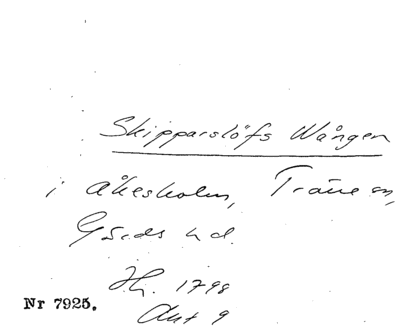 Skipparslöfs Wången
i Åkesholm, Träne sn,
Gärds hd.
Hj. 1798
Akt 9
Nr 7925.